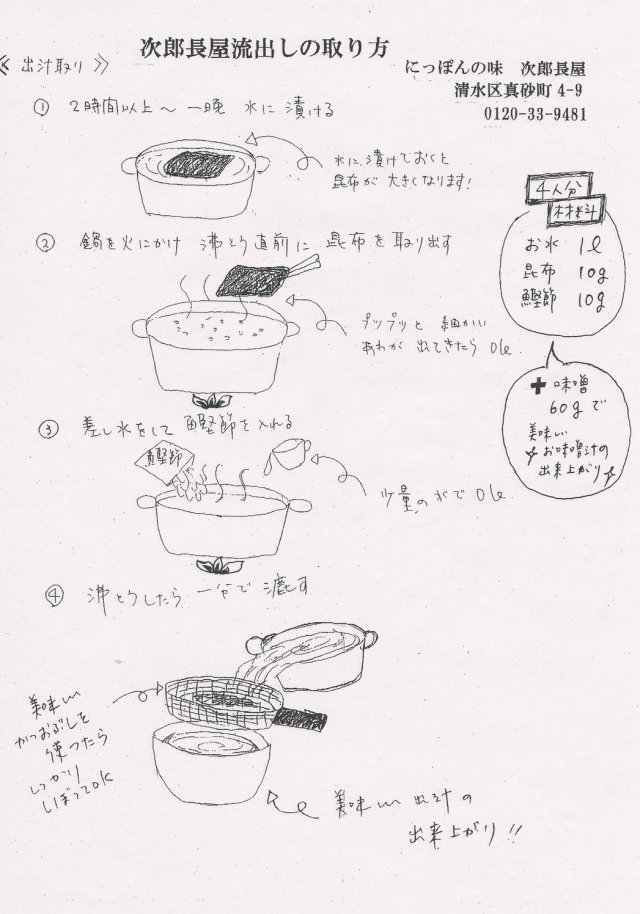 次郎長屋流出しの取り方
にっぽんの味 次郎長屋
清水区真砂町 4-9
0120-33-9481
≪ 出汁取り ≫
① 2時間以上～一晩 水に漬ける
水に漬けておくと
昆布が大きくなります!
4人分
材料
お水 1l
昆布 10g
鰹節 10g
+ 味噌
60gで
美味しい
お味噌汁の
出来上がり
② 鍋を火にかけ 沸とう直前に 昆布を取り出す
プップッと 細かい
あわが 出てきたら Ok
③ 差し水をして 鰹節を入れる
鰹節
少量の水で Ok
④ 沸とうしたら 一分で 漉す
美味しい
かつおぶしを
使ったら
しっかり
しぼってOK
美味しい 出汁の
出来上がり!!